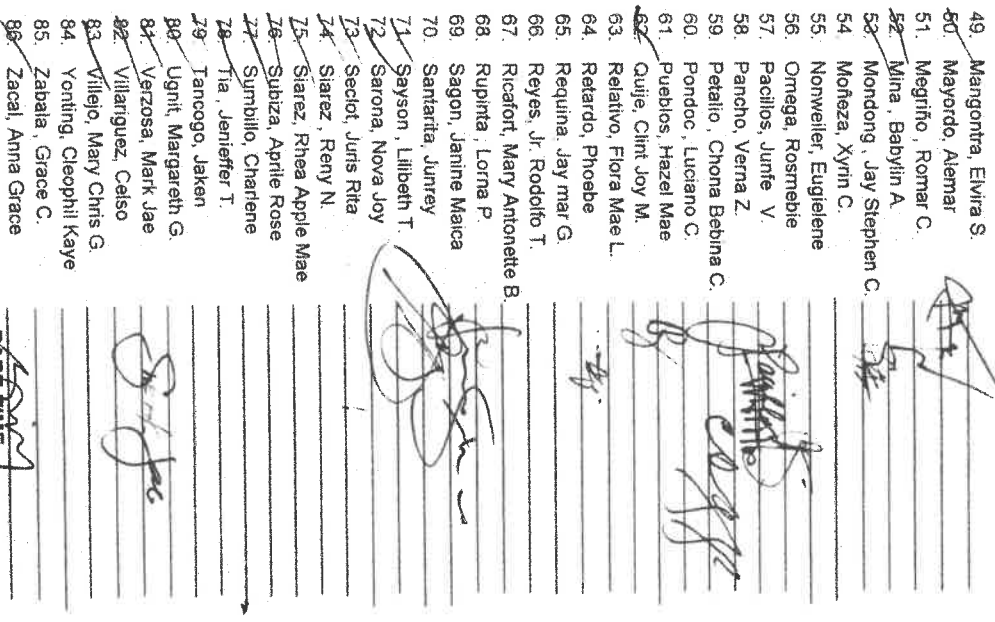 49. Mangontra, Elvira S.
50. Mayordo, Alemar
51. Megriño , Romar C.
52. Mina , Babylin A.
53. Mondong , Jay Stephen C.
54. Moñeza, Xyrin C.
55. Nonweiler, Eugielene
56. Omega, Rosmebie
57. Pacillos, Junfe V.
58. Pancho, Verna Z.
59. Petalio , Chona Bebina C.
60. Pondoc , Luciano C.
61. Pueblos, Hazel Mae
62. Quije, Clint Joy M.
63. Relativo, Flora Mae L.
64. Retardo, Phoebe
65. Requina, Jay mar G.
66. Reyes, Jr. Rodolfo T.
67. Ricafort, Mary Antonette B.
68. Rupinta, Lorna P.
69. Sagon, Janine Maica
70. Santarita, Junrey
71. Sayson, Lilibeth T.
72. Sarona, Nova Joy
73. Seclot, Juris Rita
74. Siarez , Reny N.
75. Siarez, Rhea Apple Mae
76. Subiza, Aprile Rose
77. Sumbillo, Charlene
78. Tia , Jenieffer T.
79. Tancogo, Jaken
80. Ugnit, Margareth G.
81. Verzosa, Mark Jae
82. Villariguez, Celso
83. Villejo, Mary Chris G.
84. Yonting, Cleophil Kaye
85. Zabala , Grace C.
86. Zacal, Anna Grace